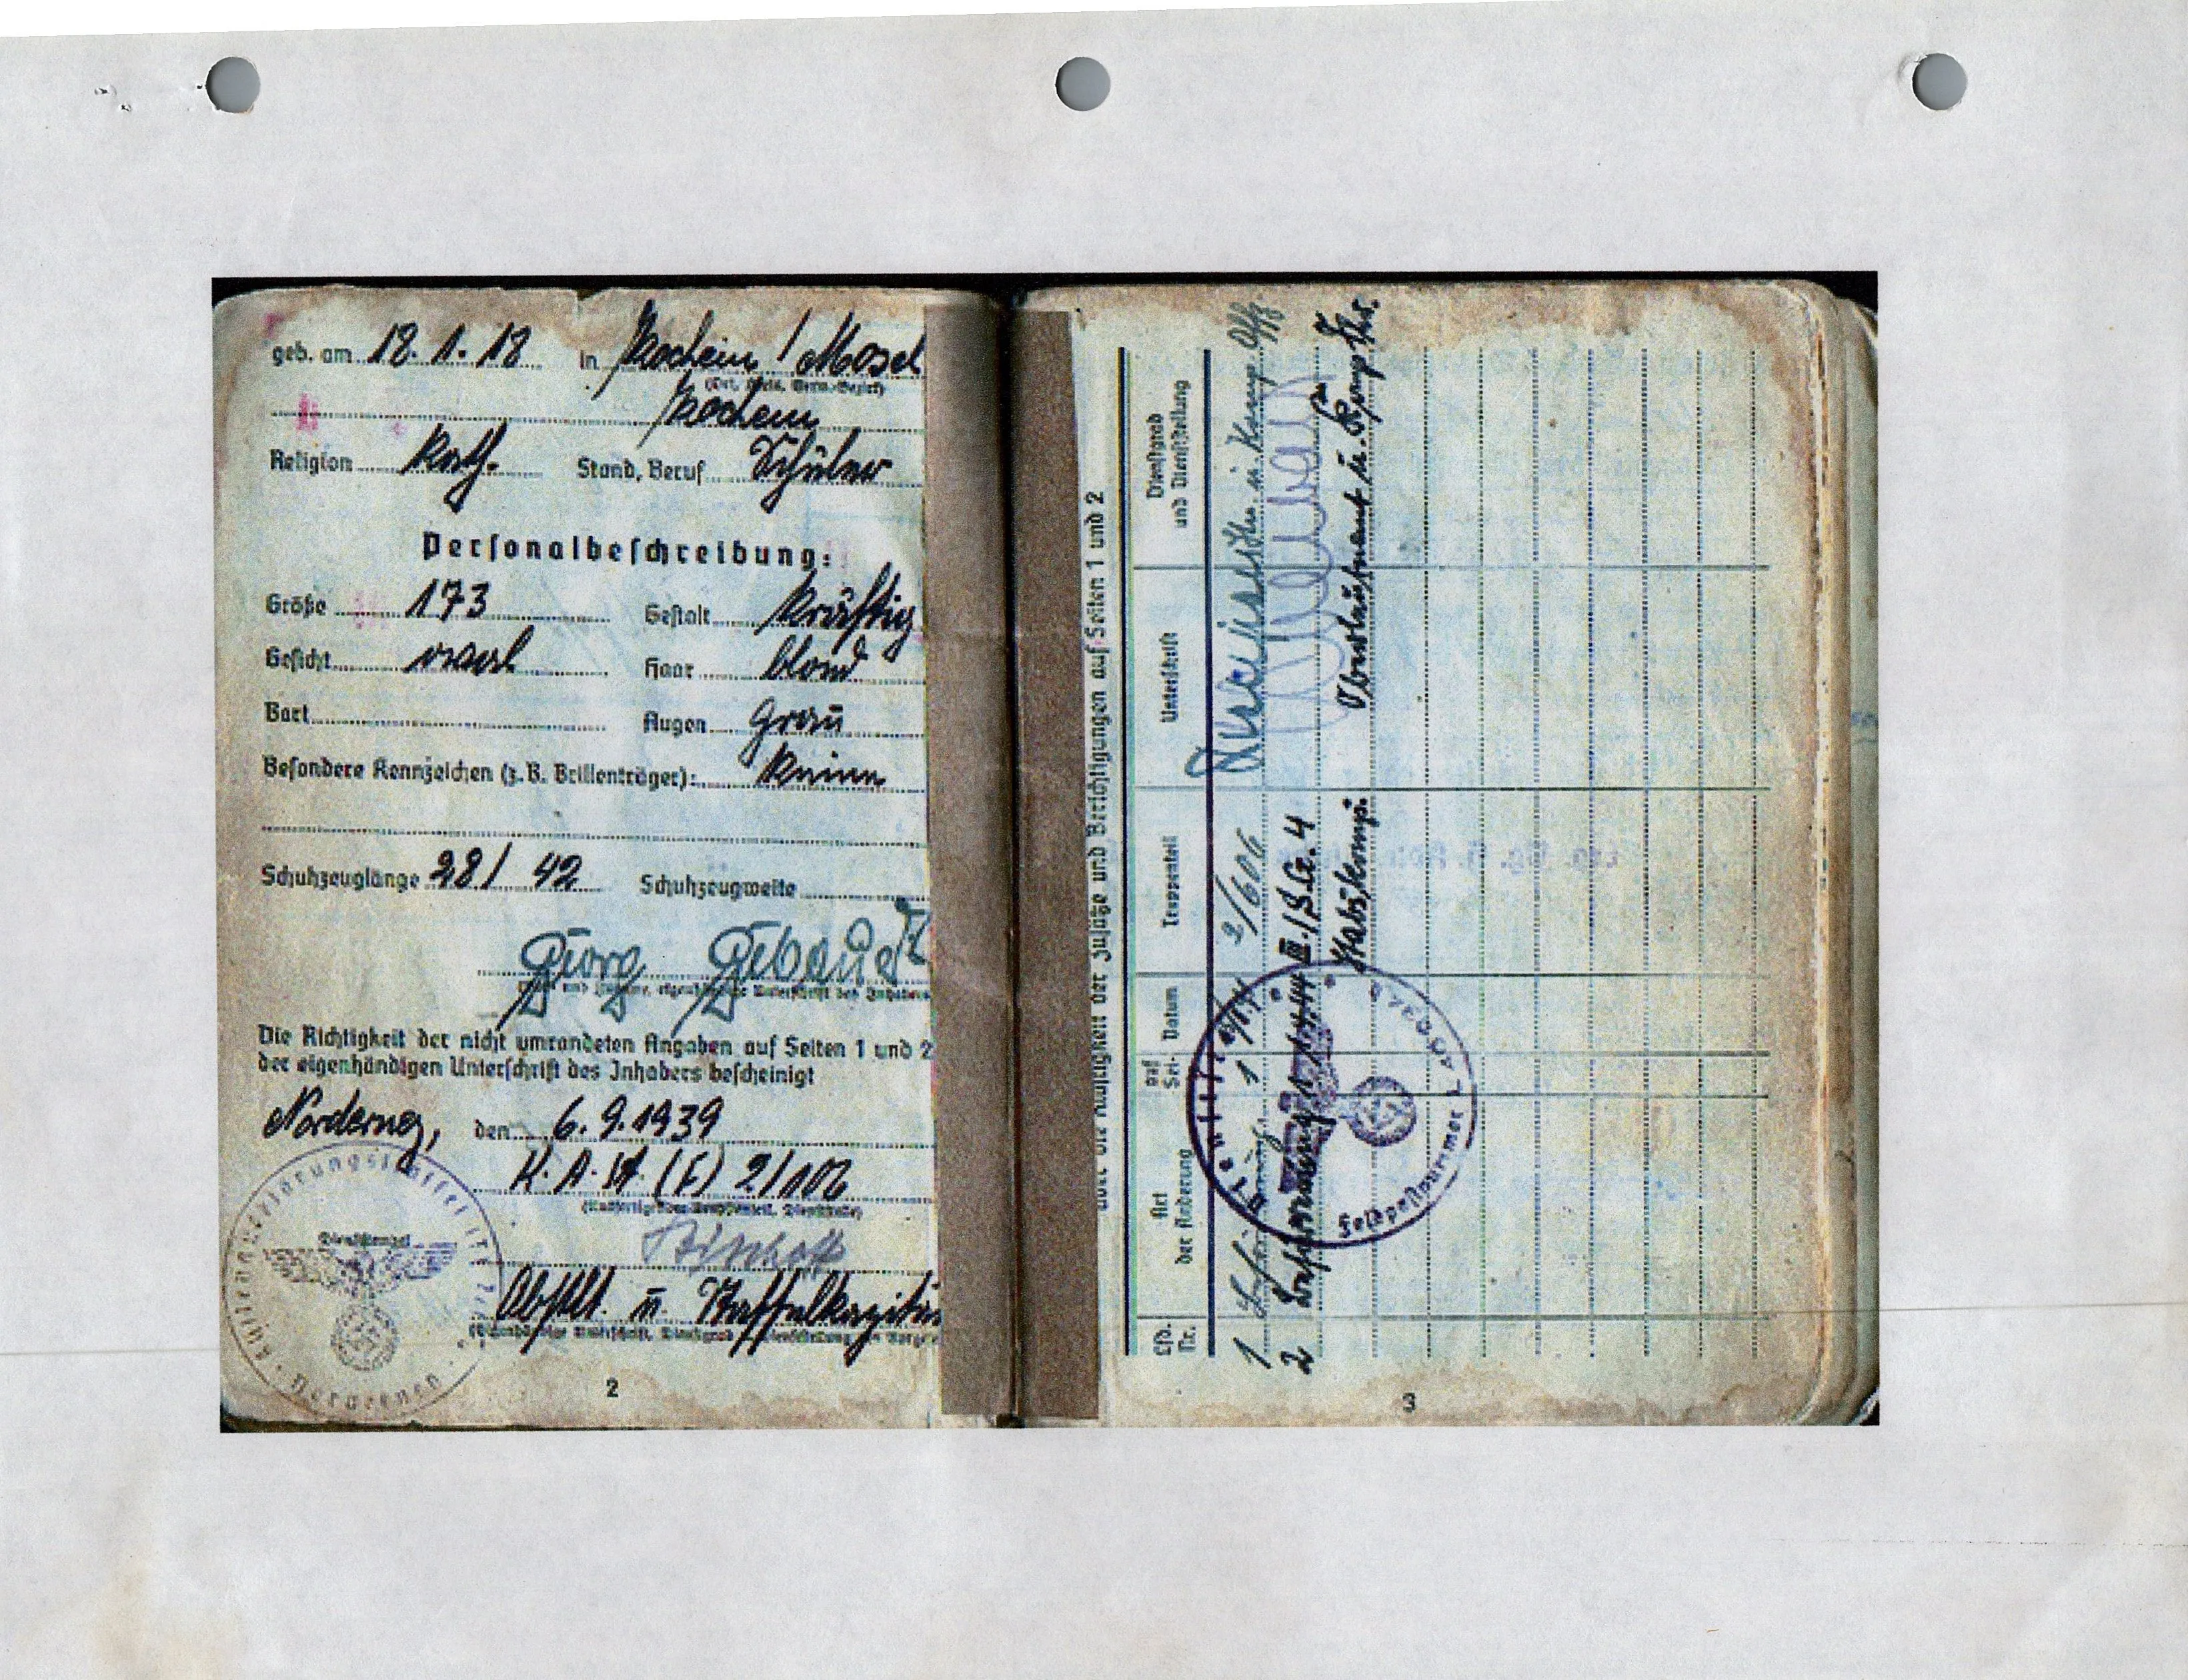 geb. am 18.1.18 in Kochem / Mosel
(Ort, Kreis, Verw.-Bezirk)
Kochem
Religion kath. Stand, Beruf Schüler
Personalbeschreibung:
Größe 173 Gestalt kräftig
Gesicht oval Haar blond
Bart Augen grau
Besondere Kennzeichen (z.B. Brillenträger): keine
Schuhzeuglänge 28 / 42 Schuhzeugweite
Georg
(Vor- und Zuname, eigenhändige Unterschrift des Inhabers
Die Richtigkeit der nicht umrandeten Angaben auf Seiten 1 und 2
der eigenhändigen Unterschrift des Inhabers bescheinigt
Norderney, den 6.9.1939
K.A.St. (F) 2/106
Dienststempel
Bischoff
Obstlt. u. Staffelkapitän
2
über die Richtigkeit der Zusätze und Berichtigungen auf Seiten 1 und 2
Lfd. Nr. Art der Änderung auf Sei- Datum Truppenteil Unterschrift Dienstgrad und Dienststellung
1 1 2/606 u. Komp. Offz
2 III./S.G. 4
Stabskomp. Oberleutnant u. Komp.
Feldpostnummer
3